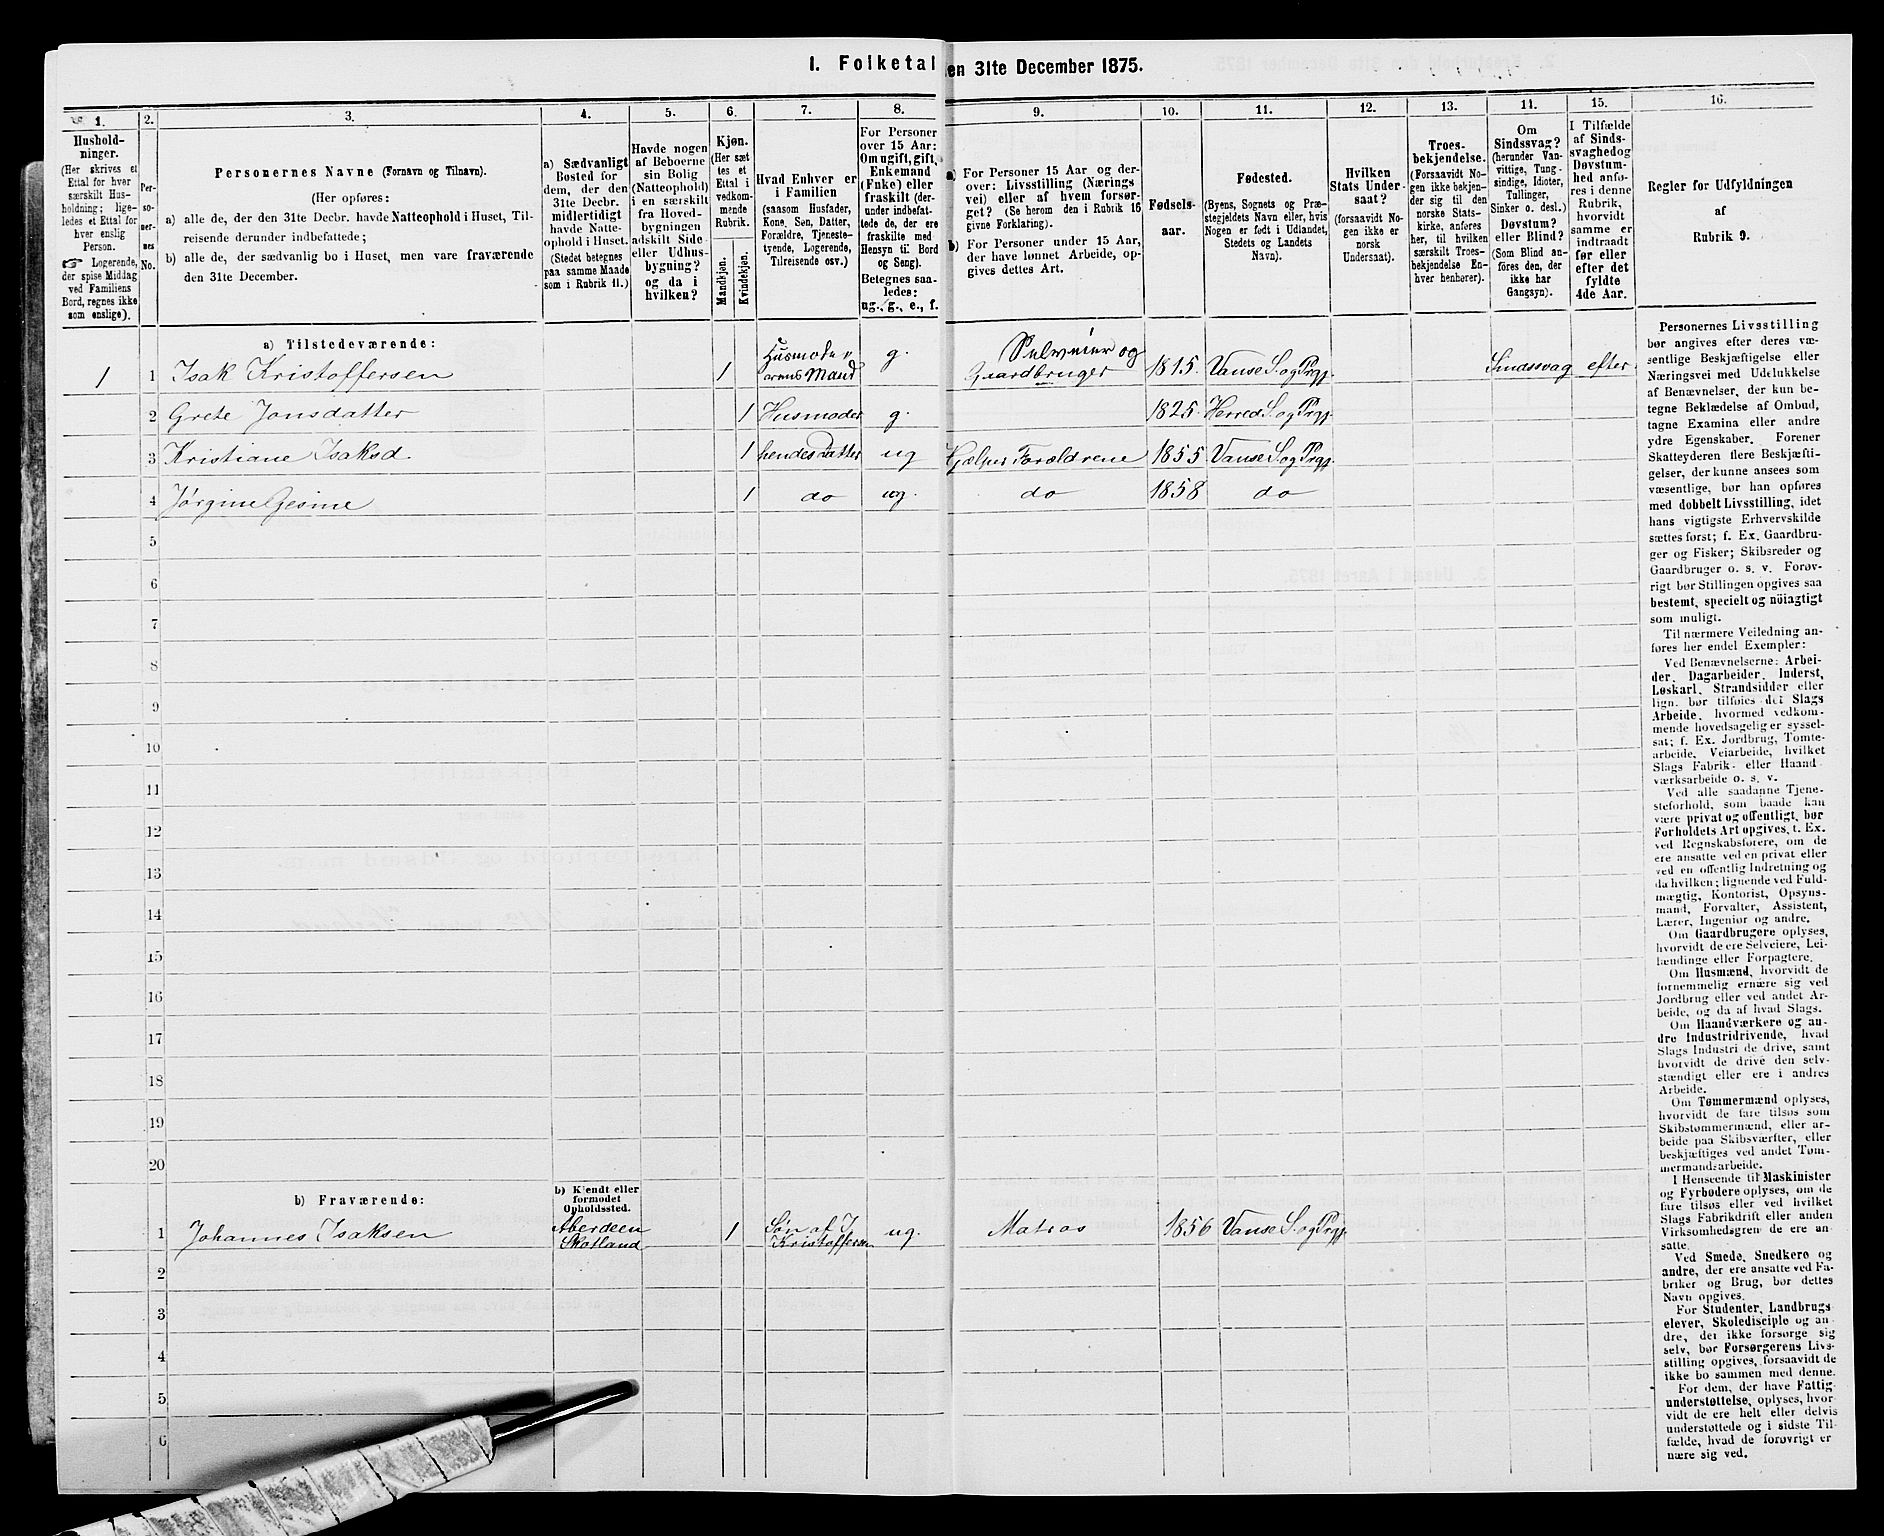 I. Folketal den 31te December 1875.
1. 2. 3. 4. 5. 6. 7. 8. 9. 10. 11. 12. 13. 14. 15. 16.
Hushold-
ninger.
(Her skrives et
Ettal for hver
særskilt Hus-
holdning; lige-
ledes et Ettal for
hver enslig
Person.
☞ Logerende,
der spise Middag
ved Familiens
Bord, regnes ikke
som enslige).
Per-
so-
ner-
nes
No.
Personernes Navne (Fornavn og Tilnavn).
(Her opføres:
a) alle de, der den 31te Decbr. havde Natteophold i Huset, Til-
reisende derunder indbefattede;
b) alle de, der sædvanlig bo i Huset, men vare fraværende
den 31te December.
a) Sædvanligt
Bosted for
dem, der den
31te Decbr.
midlertidigt
havde Natte-
ophold i Huset.
(Stedet betegnes
paa samme Maade
som i Rubrik 11.)
Havde nogen
af Beboerne
sin Bolig
(Natteophold)
i en særskilt
fra Hoved-
bygningen
adskilt Side-
eller Udhus-
bygning?
og da i
hvilken?
Kjøn.
(Her sæt-
tes et
Ettal i
vedkom-
mende
Rubrik.
Mandkjøn.
Kvindekjøn.
Hvad Enhver er
i Familien
(saasom Husfader,
Kone, Søn, Datter,
Forældre, Tjeneste-
tyende, Logerende,
Tilreisende osv.)
For Personer
over 15 Aar:
Om ugift, gift,
Enkemand
(Enke) eller
fraskilt (der-
under indbefat-
tede de, der ere
fraskilte med
Hensyn til Bord
og Seng).
Betegnes saa-
ledes:
ug., g., e., f.
a) For Personer 15 Aar og der-
over: Livsstilling (Nærings-
vei) eller af hvem forsør-
get? (Se herom den i Rubrik 16
givne Forklaring).
b) For Personer under 15 Aar,
der have lønnet Arbeide, op-
gives dettes Art.
Fødsels-
aar.
Fødested.
(Byens, Sognets og Præ-
stegjeldets Navn eller, hvis
Nogen er født i Udlandet,
Stedets og Landets
Navn).
Hvilken
Stats Under-
saat?
(forsaavidt No-
gen ikke er
norsk
Undersaat).
Troes-
bekjendelse.
(Forsaavidt No-
gen ikke bekjen-
der sig til den
norske Stats-
kirke, anføres
her, til hvilken
særskilt Troes-
bekjendelse En-
hver henhører).
Om
Sindssvag?
(herunder Van-
vittige, Tung-
sindige, Idioter,
Tullinger,
Sinker o. desl.)
Døvstum?
eller Blind?
(Som Blind an-
føres den, der
ikke har
Gangsyn).
I Tilfælde
af Sinds-
svaghed og
Døvstum-
hed anfø-
res i denne
Rubrik,
hvorvidt
samme er
indtraadt
før eller
efter det
fyldte
4de Aar.
Regler for Udfyldningen
af
Rubrik 9.
a) Tilstedeværende:
1 1 Isak Kristoffersen 1 Husmoderens Mand g. Selveier og Gaardbruger 1815 Vanse S. og Prgj. Sindssvag efter
2 Grete Jonsdatter 1 Husmoder g. 1825 Herred S. og Prgj.
3 Kristiane Isaksd. 1 hendes Datter ug Hjælper Forældrene 1855 Vanse S. og Prgj.
4 Jørgine Gesine 1 do ug. do 1858 do
5
6
7
8
9
10
11
12
13
14
15
16
17
18
19
20
b) Fraværende:
b) Kjendt eller
formodet
Opholdssted.
1 Johannes Isaksen Aberdeen Skotland 1 Søn af I. Kristoffersen ug. Matros 1856 Vanse S. og Prgj.
2
3
4
5
6
Personernes Livsstilling
bør angives efter deres væ-
sentlige Beskjæftigelse eller
Næringsvei med Udelukkelse
af Benævnelser, der kun be-
tegne Beklædelse af Ombud,
tagne Examina eller andre
ydre Egenskaber. Forener
Skatteyderen flere Beskjæfti-
gelser, der kunne ansees som
væsentlige, bør han opføres
med dobbelt Livsstilling, idet
hans vigtigste Erhvervskilde
sættes først; f. Ex. Gaardbru-
ger og Fisker; Skibsreder og
Gaardbruger o. s. v. Forøv-
rigt bør Stillingen opgives saa
bestemt, specielt og nöiagtigt
som muligt.
Til nærmere Veiledning an-
føres her endel Exempler:
Ved Benævnelserne: Arbei-
der, Dagarbeider, Inderst,
Løskarl, Strandsidder eller
lign. bør tilføies det Slags
Arbeide, hvormed vedkom-
mende hovedsagelig er syssel-
sat; f. Ex. Jordbrug, Tomte-
arbeide, Veiarbeide, hvilket
Slags Fabrik- eller Haand-
værksarbeide o. s. v.
Ved alle saadanne Tjene-
steforhold, som baade kan
være privat og offentligt, bør
Forholdets Art opgives, t. Ex.
ved Regnskabsførere, om de
ere ansatte ved en privat eller
ved en offentlig Indretning og
da hvilken; lignende ved Fuld-
mægtig, Kontorist, Opsyns-
mand, Forvalter, Assistent,
Lærer, Ingeniør og andre.
Om Gaardbrugere oplyses,
hvorvidt de ere Selveiere, Lei-
lændinge eller Forpagtere.
Om Husmænd, hvorvidt de
fornemmelig ernære sig ved
Jordbrug eller ved andet Ar-
beide, og da af hvad Slags.
Om Haandværkere og an-
dre Industridrivende, hvad
Slags Industri de drive, samt
hvorvidt de drive den selv-
stændigt eller ere i andres
Arbeide.
Om Tømmermænd oplyses,
hvorvidt de fare tilsøs som
Skibstømmermænd, eller ar-
beide paa Skibsværfter, eller
beskjæftiges ved andet Tøm-
mermandsarbeide.
I Henseende til Maskinister
og Fyrbødere oplyses, om de
fare tilsøs eller ved hvilket
Slags Fabrikdrift eller anden
Virksomhedsgren de ere an-
satte.
Ved Smede, Snedkere og
andre, der ere ansatte ved Fa-
briker og Brug, bør dettes
Navn opgives.
For Studenter, Landbrugs-
elever, Skoledisciple og an-
dre, der ikke forsørge sig
selv, bør Forsørgerens Livs-
stilling opgives, forsaavidt de
ikke bo sammen med denne.
For dem, der have Fattig-
understøttelse, oplyses, hvor-
vidt de ere helt eller delvis
understøttede og i sidste Til-
fælde, hvad de forøvrigt er-
nære sig ved.